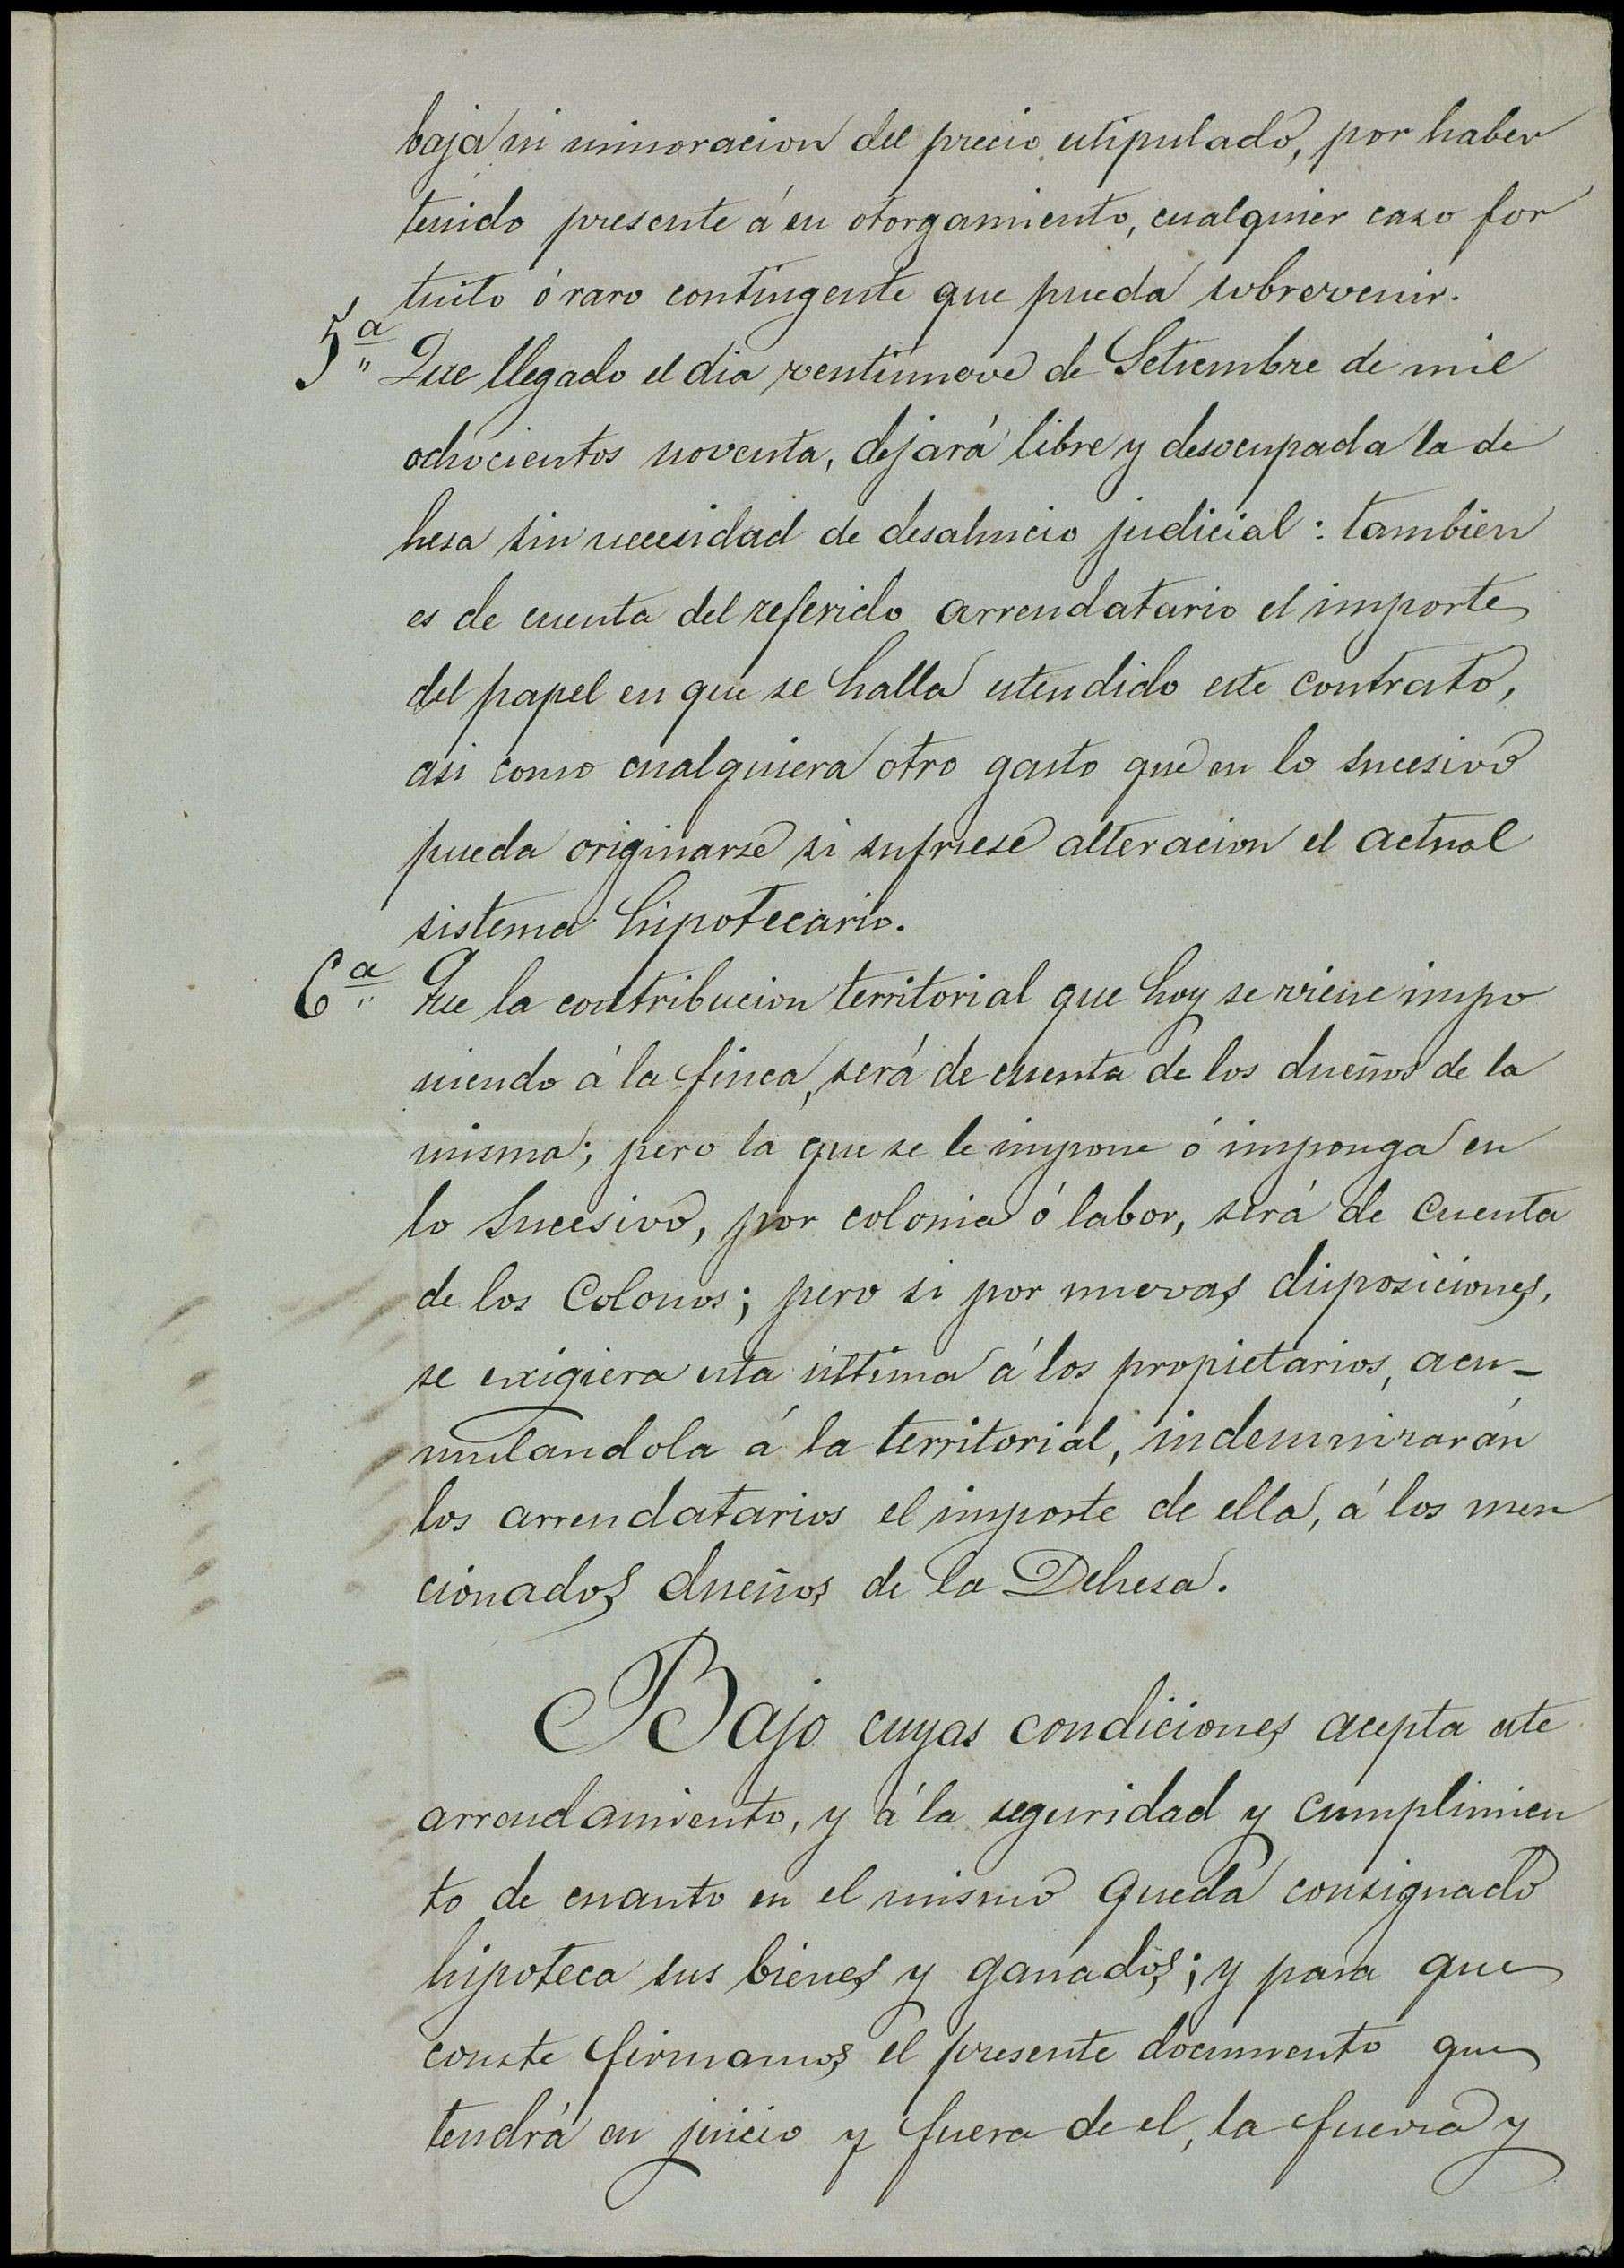 baja ni minoracion del precio estipulado, por haber
tenido presente á su otorgamiento, cualquier caso for
tuito ó raro contingente que pueda sobrevenir.
5ª Que llegado el dia ventinueve de Setiembre de mil
ochocientos noventa, dejará libre y desocupada la de
hesa sin necesidad de desahucio judicial: tambien
es de cuenta del referido arrendatario el importe
del papel en que se halla estendido este contrato,
asi como cualquiera otro gasto que en lo sucesivo
pueda originarse si sufriese alteracion el actual
sistema hipotecario.
6ª Que la contribucion territorial que hoy se viene impo
niendo á la finca, será de cuenta de los dueños de la
misma; pero la que se le impone ó imponga en
lo sucesivo, por colonia ó labor, será de cuenta
de los Colonos; pero si por nuevas disposiciones,
se exigiera esta última á los propietarios, acu-
mulandola á la territorial, indemnizarán
los arrendatarios el importe de ella, á los men
cionados dueños de la Dehesa.
Bajo cuyas condiciones acepta este
arrendamiento, y á la seguridad y cumplimien
to de cuanto en el mismo queda consignado
hipoteca sus bienes y ganados; y para que
conste firmamos el presente documento que
tendrá en juicio y fuera de el, la fuerza y